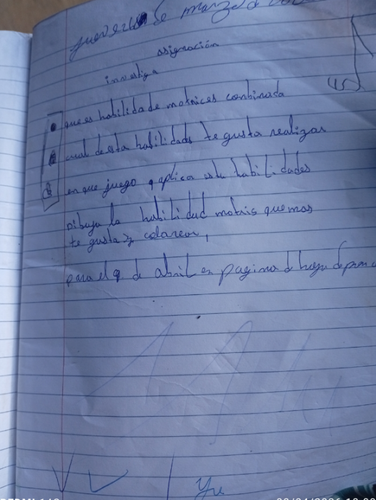 jueves de marzo
asignación
investiga
que es habilidade motrices combinada
cual de esta habilidades te gusta realizar
en que juego aplica esta habilidades
dibuja la habilidad motris que mas
te gusta y colorear,
para el 9 de abril en pagina de